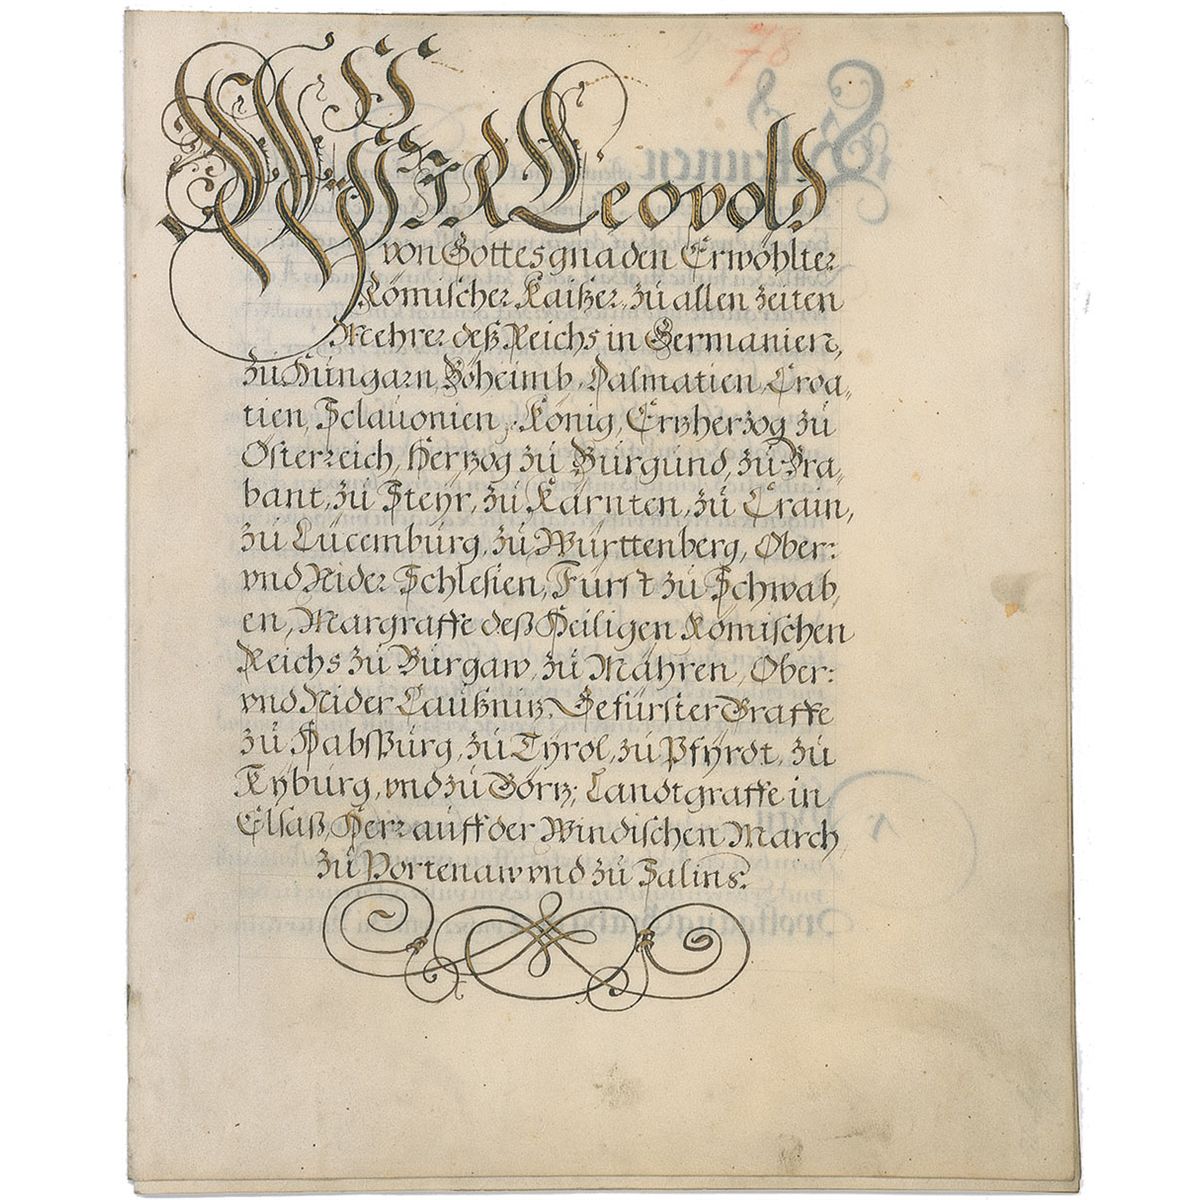 78
WIR Leopold
von Gottes gnaden Erwöhlter
Römischer Kaißer, zu allen zeiten
Mehrer deß Reichs in Germanien,
zu Hungarn, Böheimb, Dalmatien, Croa-
tien, Sclavonien, König, Ertzherzog zu
Österreich, Hertzog zu Burgund, zu Bra-
bant, zu Steyr, zu Kärnten, zu Crain,
zu Lucemburg, zu Württenberg, Ober:
vnd Nider Schlesien, Fürst zu Schwab-
en, Margraffe deß Heiligen Römischen
Reichs zu Burgaw, zu Mähren, Ober:
vnd Nider Laußnitz, Gefürster Graffe
zu Habspurg, zu Tyrol, zu Pfyrdt, zu
Kyburg, vnd zu Görtz, Landtgraffe in
Elsaß, Herr auff der Windischen March
zu Portenaw vnd zu Salins.